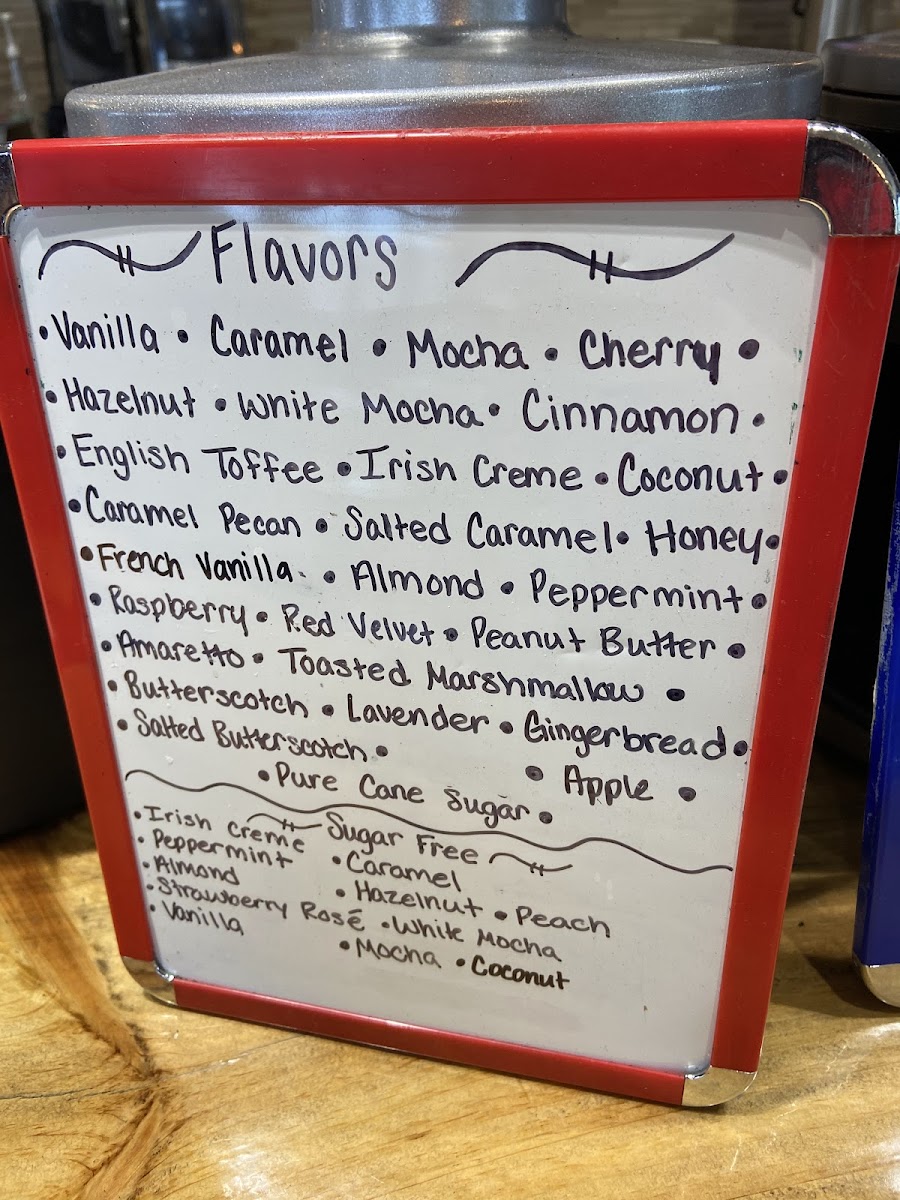 Flavors
• Vanilla • Caramel • Mocha • Cherry •
• Hazelnut • White Mocha • Cinnamon •
• English Toffee • Irish Creme • Coconut •
• Caramel Pecan • Salted Caramel • Honey •
• French Vanilla • Almond • Peppermint •
• Raspberry • Red Velvet • Peanut Butter •
• Amaretto • Toasted Marshmallow •
• Butterscotch • Lavender • Gingerbread •
• Salted Butterscotch • • Apple •
• Pure Cane Sugar •
Sugar Free
• Irish creme
• Peppermint • Caramel
• Almond • Hazelnut • Peach
• Strawberry Rosé • White Mocha
• Vanilla • Mocha • Coconut